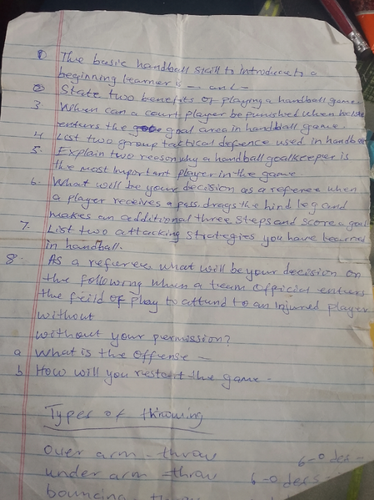 ① The basic handball skill to introduce to a
beginning learner is -- and --
② State two benefits of playing a handball game
3. When can a court player be punished when he/she
enters the goal area in handball game.
4. List two group tactical defence used in handball
5. Explain two reasons why a handball goalkeeper is
the most important player in the game
6. What will be your decision as a referee when
a player receives a pass, drags the hind leg and
makes an additional three steps and scores goal
7. List two attacking strategies you have learned
in handball.
8. As a referee, what will be your decision on
the following when a team official enters
the feild of play to attend to an injured player
without
without your permission?
a What is the offense -
b How will you restart the game -
Types of throwing
over arm - throw 6-0 des -
under arm - throw 6-0 defs
bouncing throw